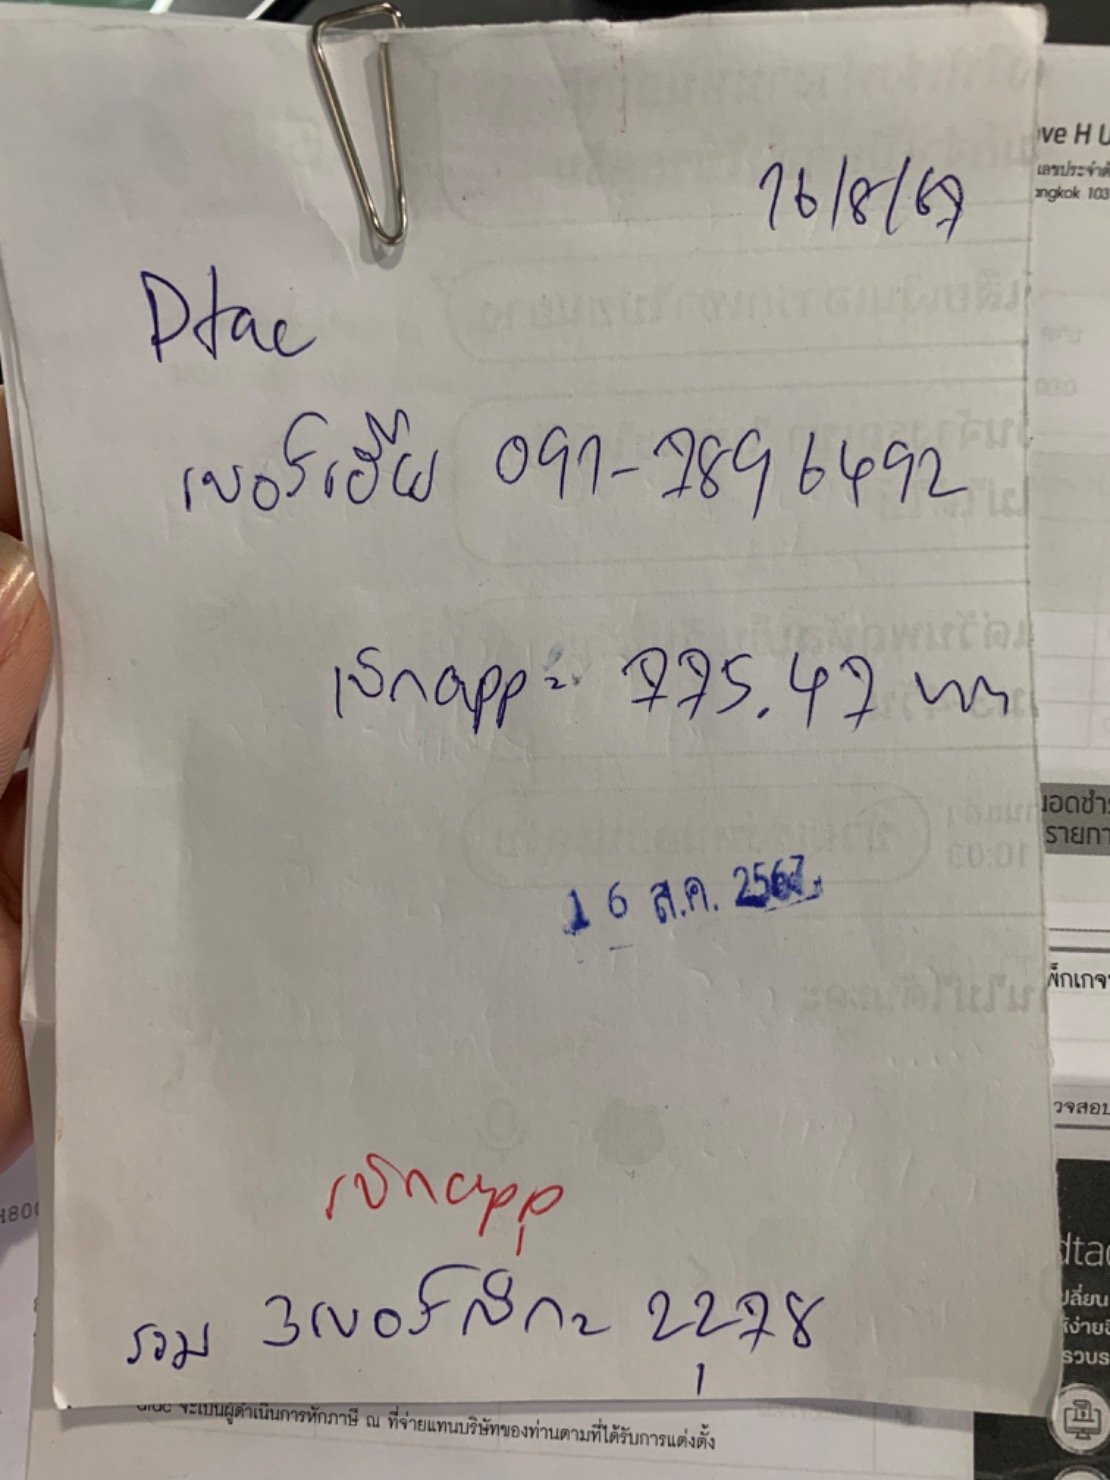 16/8/67
Dtac
เบอร์เฮีย 091-7896492
เบิกapp = 775.47 บาท
16 ส.ค. 2567
เบิกapp
รวม 3เบอร์ 2,278
ove H U
เลขประจำตั
angkok 103
ยอดชำ
รายกา
พ็กเกจ
วจสอบ
dtac
ปลี่ยน
รวบร
dtac จะเป็นผู้ดำเนินการหักภาษี ณ ที่จ่ายแทนบริษัทของท่านตามที่ได้รับการแต่งตั้ง